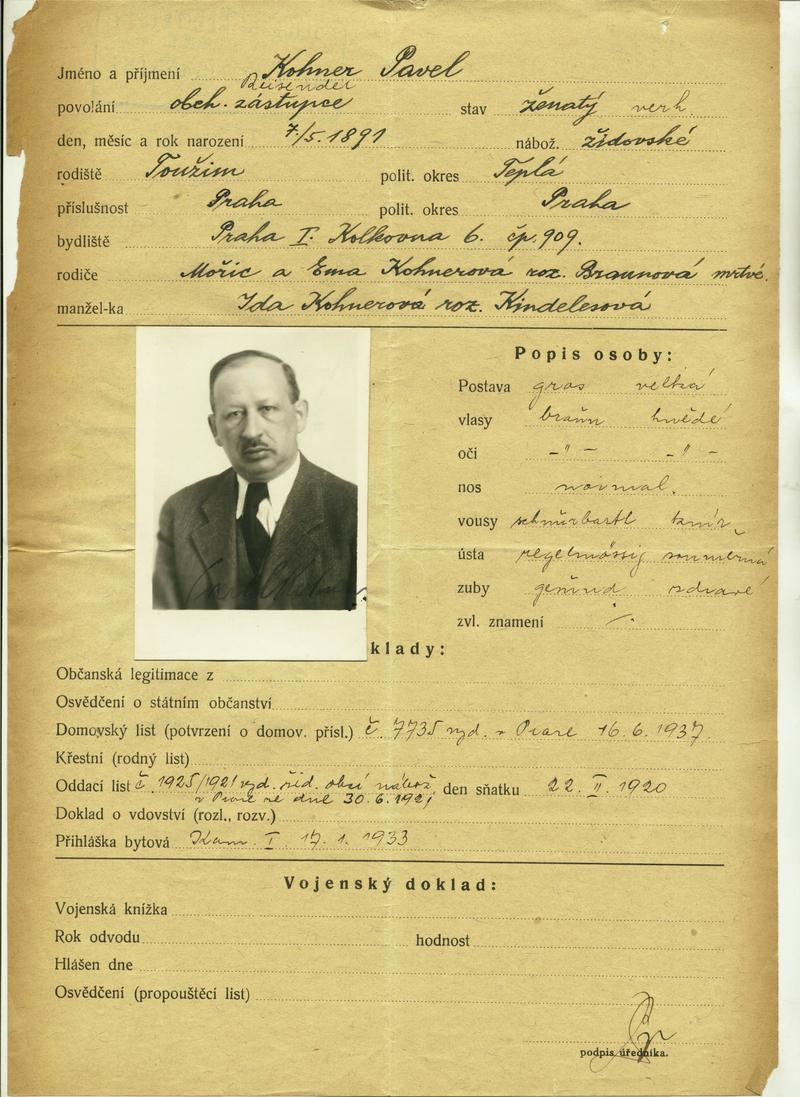 Jméno a příjmení Kohner Pavel
Reisender
povolání obch. zástupce stav ženatý verh.
den, měsíc a rok narození 7/5. 1891 nábož. židovské
rodiště Toužim polit. okres Teplá
příslušnost Praha polit. okres Praha
bydliště Praha I. Kolkovna 6. čp. 909.
rodiče Mořic a Ema Kohnerová roz. Braunová mrtvé.
manžel-ka Ida Kohnerová roz. Kindelesová
Popis osoby:
Postava gros velká
vlasy braun hnědé
oči –"– –"–
nos normal.
vousy schnurbartl knír
ústa regelmässig souměrná
zuby gesund zdravé
zvl. znamení ./.
klady:
Občanská legitimace z
Osvědčení o státním občanství
Domovský list (potvrzení o domov. přísl.) č. 7735 vyd. v Praze 16. 6. 1937.
Křestní (rodný list)
Oddací list č. 1925/1921 vyd. žid. obcí nábož. den sňatku 22. II. 1920
v Praze ze dne 30. 6. 1921
Doklad o vdovství (rozl., rozv.)
Přihláška bytová Kom. I 17. 1. 1933
Vojenský doklad:
Vojenská knížka
Rok odvodu hodnost
Hlášen dne
Osvědčení (propouštěcí list)
podpis úředníka.